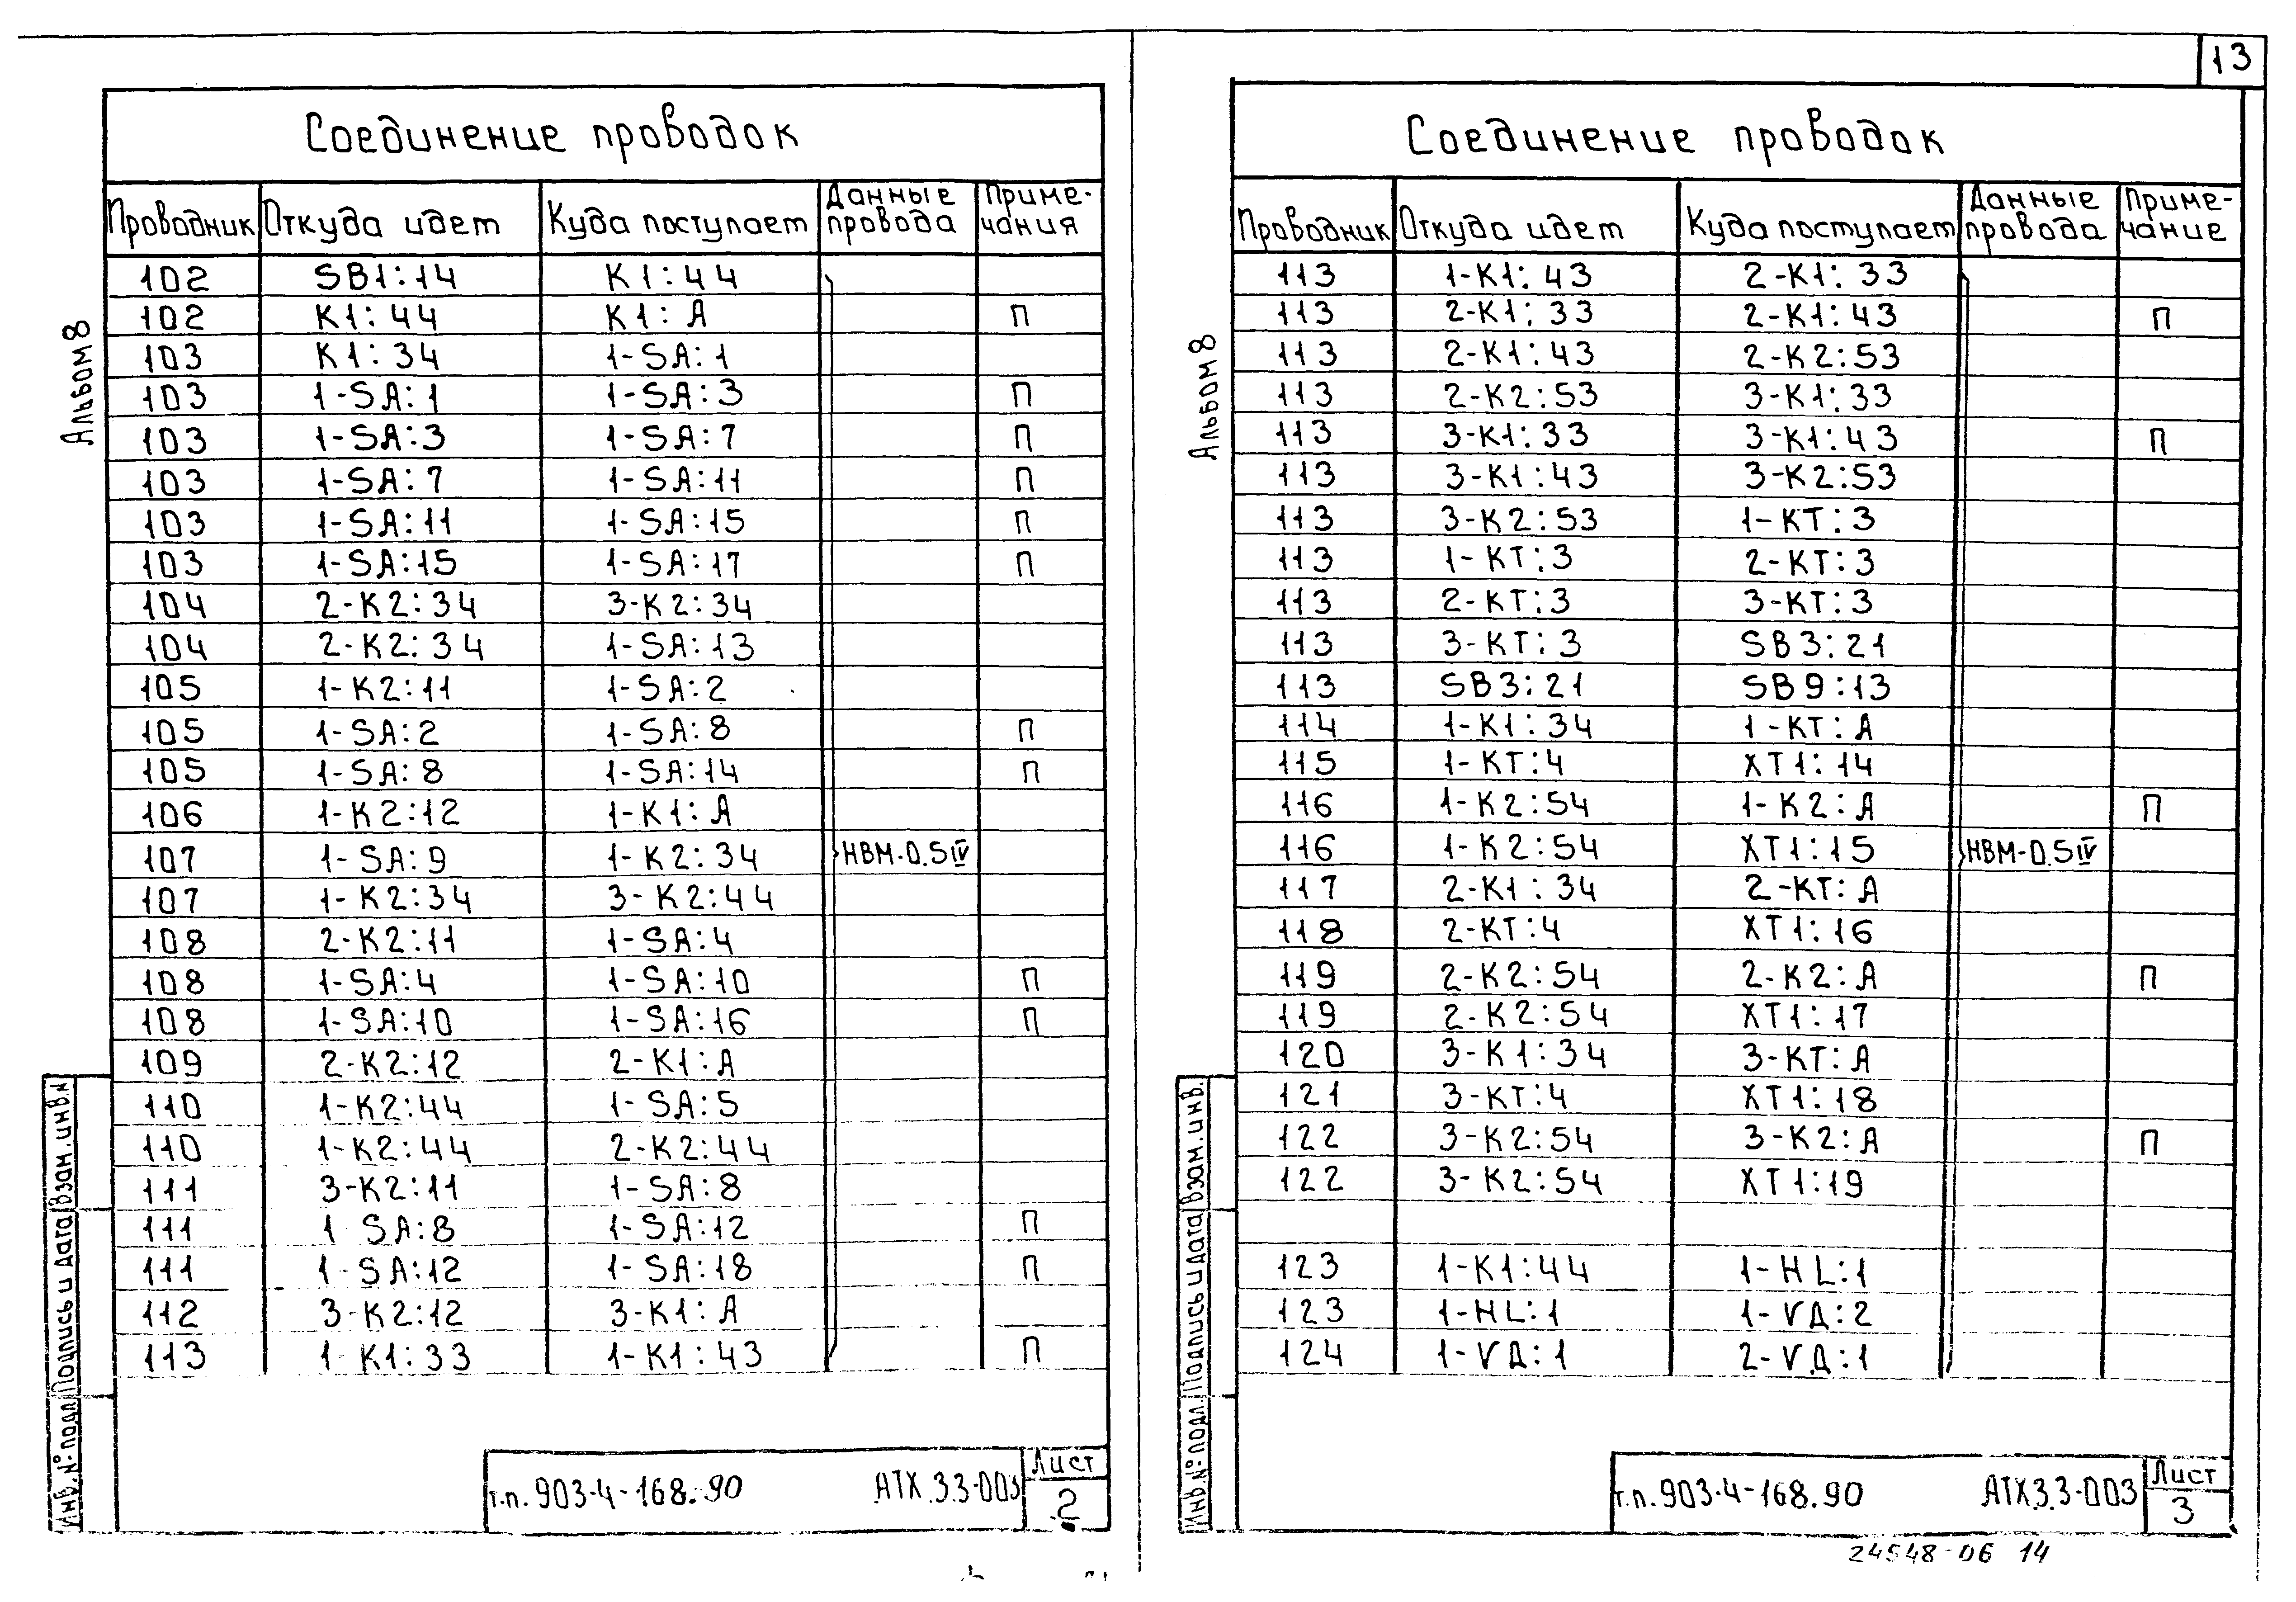 13
Альбом 8
Соединение проводок
Проводник Откуда идет Куда поступает Данные провода Приме-чания
102 SB1:14 K1:44
102 K1:44 K1:A П
103 K1:34 1-SA:1
103 1-SA:1 1-SA:3 П
103 1-SA:3 1-SA:7 П
103 1-SA:7 1-SA:11 П
103 1-SA:11 1-SA:15 П
103 1-SA:15 1-SA:17 П
104 2-K2:34 3-K2:34
104 2-K2:34 1-SA:13
105 1-K2:11 1-SA:2
105 1-SA:2 1-SA:8 П
105 1-SA:8 1-SA:14 П
106 1-K2:12 1-K1:A
107 1-SA:9 1-K2:34 НВМ-0.5 IV
107 1-K2:34 3-K2:44
108 2-K2:11 1-SA:4
108 1-SA:4 1-SA:10 П
108 1-SA:10 1-SA:16 П
109 2-K2:12 2-K1:A
110 1-K2:44 1-SA:5
110 1-K2:44 2-K2:44
111 3-K2:11 1-SA:8
111 1 SA:8 1-SA:12 П
111 1-SA:12 1-SA:18 П
112 3-K2:12 3-K1:A
113 1-K1:33 1-K1:43 П
Инв.№ подл Подпись и дата Взам.инв.н
т.п. 903-4-168.90 АТХ.3.3-003 Лист
2
Альбом 8
Соединение проводок
Проводник Откуда идет Куда поступает Данные провода Приме-чание
113 1-K1:43 2-K1:33
113 2-K1:33 2-K1:43 П
113 2-K1:43 2-K2:53
113 2-K2:53 3-K1:33
113 3-K1:33 3-K1:43 П
113 3-K1:43 3-K2:53
113 3-K2:53 1-KT:3
113 1-KT:3 2-KT:3
113 2-KT:3 3-KT:3
113 3-KT:3 SB3:21
113 SB3:21 SB9:13
114 1-K1:34 1-KT:A
115 1-KT:4 XT1:14
116 1-K2:54 1-K2:A П
116 1-K2:54 XT1:15 НВМ-0.5 IV
117 2-K1:34 2-KT:A
118 2-KT:4 XT1:16
119 2-K2:54 2-K2:A П
119 2-K2:54 XT1:17
120 3-K1:34 3-KT:A
121 3-KT:4 XT1:18
122 3-K2:54 3-K2:A П
122 3-K2:54 XT1:19
123 1-K1:44 1-HL:1
123 1-HL:1 1-VД:2
124 1-VД:1 2-VД:1
Инв.№ подл. Подпись и дата Взам.инв.
т.п. 903-4-168.90 АТХ3.3-003 Лист
3
24548-06 14